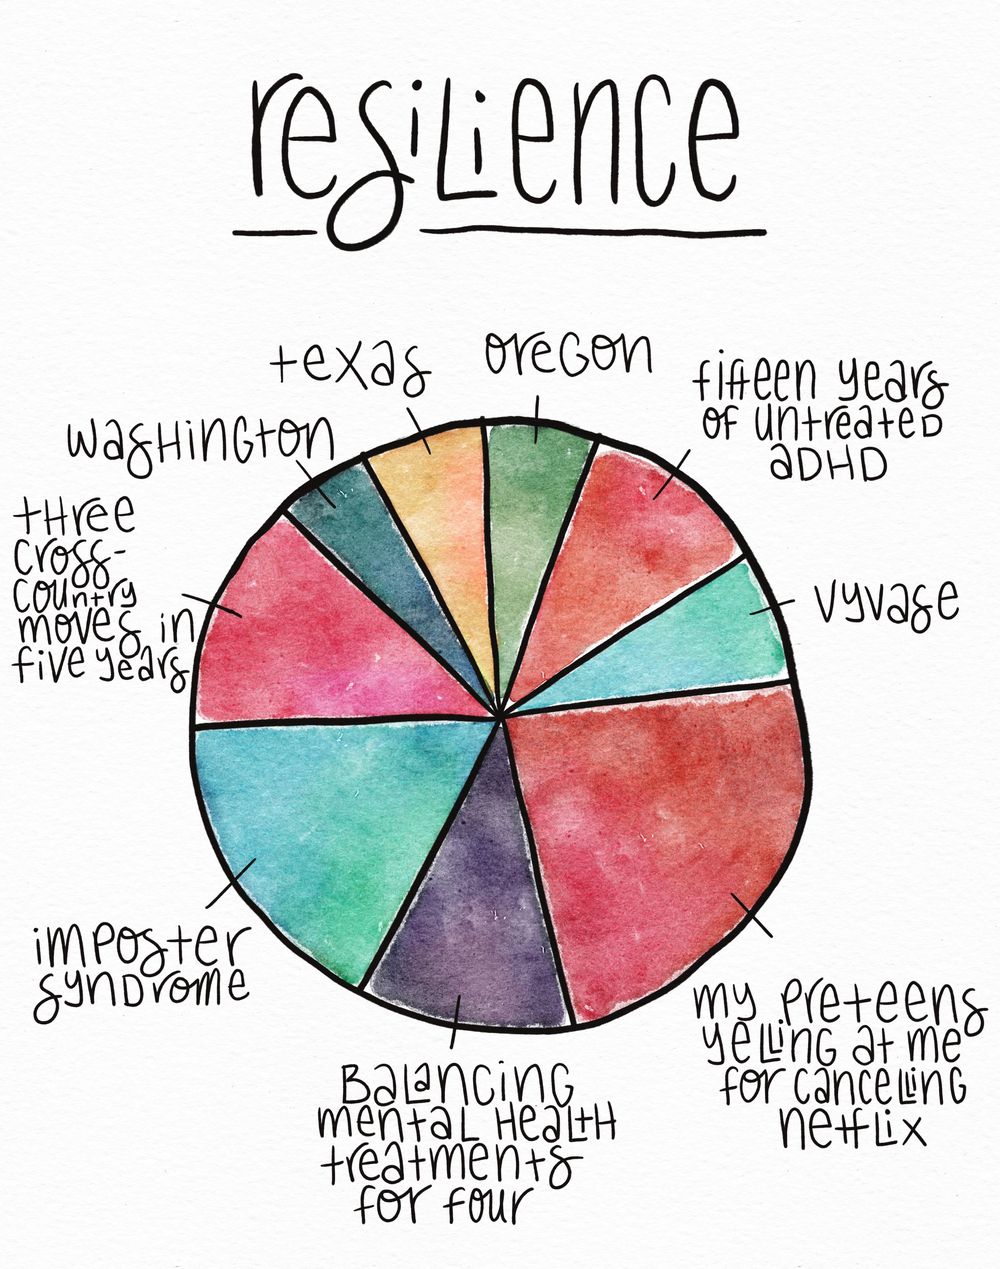 resilience
texas
oregon
washington
fifteen years
of untreated
ADHD
three
cross-
country
moves in
five years
vyvase
imposter
syndrome
my preteens
yelling at me
for canceling
netflix
Balancing
mental health
treatments
for four